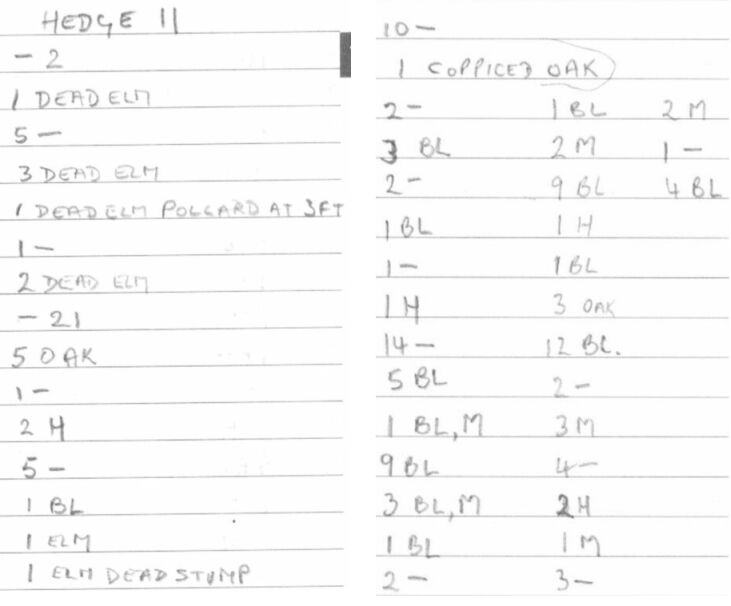 HEDGE 11
- 2
1 DEAD ELM
5 -
3 DEAD ELM
1 DEAD ELM POLLARD AT 3FT
1 -
2 DEAD ELM
- 21
5 OAK
1 -
2 H
5 -
1 BL
1 ELM
1 ELM DEAD STUMP
10 -
1 COPPICED OAK
2 -
3 BL
2 -
1 BL
1 -
1 H
14 -
5 BL
1 BL, M
9 BL
3 BL, M
1 BL
2 -
1 BL
2 M
9 BL
1 H
1 BL
3 OAK
12 BL.
2 -
3 M
4 -
2 H
1 M
3 -
2 M
1 -
4 BL